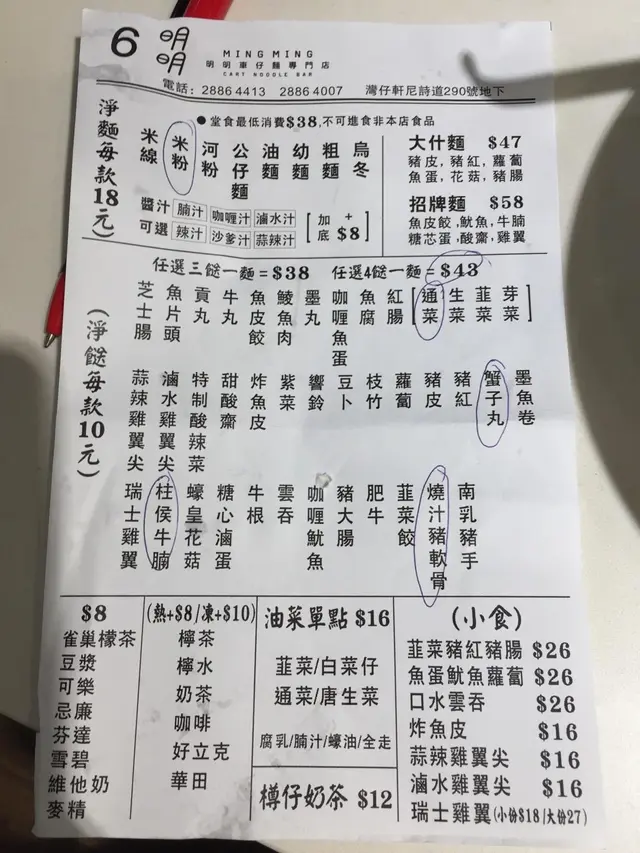 6 明明
MING MING
明明車仔麵專門店
CART NOODLE BAR
電話: 2886 4413 2886 4007 灣仔軒尼詩道290號地下
●堂食最低消費$38,不可進食非本店食品
淨麵每款18元
米線
米粉
河粉
公仔麵
油麵
幼麵
粗麵
烏冬
醬汁可選
腩汁 咖喱汁 滷水汁
辣汁 沙爹汁 蒜辣汁
[加底 + $8]
大什麵 $47
豬皮,豬紅,蘿蔔
魚蛋,花菇,豬腸
招牌麵 $58
魚皮餃,魷魚,牛腩
糖芯蛋,酸齋,雞翼
任選三餸一麵=$38 任選4餸一麵=$43
(淨餸每款10元)
芝士腸
魚片頭
貢丸
牛丸
魚皮餃
鯪魚肉
墨丸
咖喱魚蛋
魚腐
紅腸
[通菜
生菜
韮菜
芽菜]
蒜辣雞翼尖
滷水雞翼尖
特制酸辣菜
甜酸齋
炸魚皮
紫菜
響鈴
豆卜
枝竹
蘿蔔
豬皮
豬紅
蟹子丸
墨魚卷
瑞士雞翼
柱侯牛腩
蠔皇花菇
糖心滷蛋
牛根
雲吞
咖喱魷魚
豬大腸
肥牛
韮菜餃
燒汁豬軟骨
南乳豬手
$8
雀巢檬茶
豆漿
可樂
忌廉
芬達
雪碧
維他奶
麥精
(熱+$8/凍+$10)
檸茶
檸水
奶茶
咖啡
好立克
華田
油菜單點 $16
韮菜/白菜仔
通菜/唐生菜
腐乳/腩汁/蠔油/全走
樽仔奶茶 $12
(小食)
韮菜豬紅豬腸 $26
魚蛋魷魚蘿蔔 $26
口水雲吞 $26
炸魚皮 $16
蒜辣雞翼尖 $16
滷水雞翼尖 $16
瑞士雞翼(小份$18/大份27)